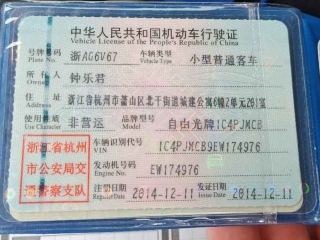 中华人民共和国机动车行驶证
Vehicle License of the People's Republic of China
号牌号码 浙AG6V67 车辆类型 小型普通客车
Plate No. Vehicle Type
所有人 钟乐君
Owner
住址 浙江省杭州市萧山区北干街道城建公寓6幢2单元201室
Address
使用性质 非营运 品牌型号 自由光牌1C4PJMCB
Use Character Model
浙江省杭州 车辆识别代号 1C4PJMCB9EW174976
VIN
市公安局交 发动机号码 EW174976
Engine No.
通警察支队 注册日期 2014-12-11 发证日期 2014-12-11
Register Date Issue Date